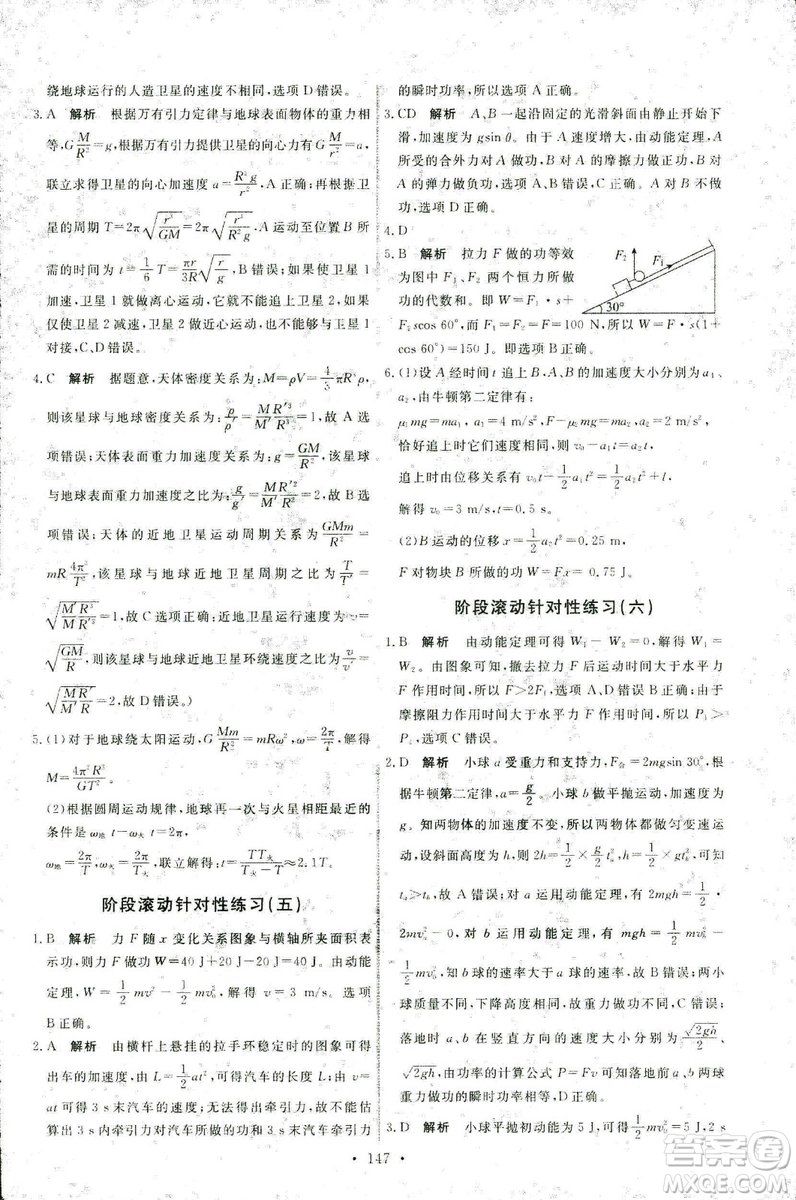 绕地球运行的人造卫星的速度不相同,选项 D 错误。
3. A 解析 根据万有引力定律与地球表面物体的重力相
等,G M/R² = g,根据万有引力提供卫星的向心力有 G M/r² = a,
联立求得卫星的向心加速度 a = R²g/r²,A 正确;根据卫
星的周期 T = 2π√(r³/GM) = 2π√(r³/R²g),A 运动至位置 B 所
需的时间为 t = 1/6 T = πr/3R √(r/g),B 错误;卫星 1 如果
加速,卫星 1 就做离心运动,它就不能追上卫星 2,如果
仅使卫星 2 减速,卫星 2 做近心运动,也不能与卫星 1
对接,C、D 错误。
4. C 解析 据题意,天体密度关系为:M = ρV = 4/3 πR³ρ,
则该星球与地球密度关系为:ρ/ρ′ = MR′³/M′R³ = 1,故 A 选
项错误;天体表面重力加速度关系为:g = GM/R²,则该星球
与地球表面重力加速度之比为:g/g′ = MR′²/M′R² = 2,故 B 选
项错误;该天体近地卫星运动周期关系为:GMm/R² =
mR 4π²/T²,该星球与地球的近地卫星周期之比为:T/T′ =
√(M′R³/MR′³) = 1,故 C 选项正确;近地卫星的环绕速度为:v =
√(GM/R),则该星球与地球近地卫星环绕速度之比为:v/v′ =
√(MR′/M′R) = 2,故 D 错误。)
5. (1)对于地球绕太阳运动,G Mm/R² = mRω²,ω = 2π/T,解得
M = 4π²R³/GT²。
(2)根据圆周运动规律,地球再一次与火星相距最近的
条件是 ω地 t − ω火 t = 2π
ω地 = 2π/T,ω火 = 2π/T火,联立解得:t = TT火/(T火−T) ≈ 2.1T。
阶段滚动针对性练习(五)
1. B 解析 力 F 随 x 变化关系图象与横轴所夹面积表
示功,力 F 做功为 W = 40 J + 20 J − 20 J = 40 J。由动能
定理,W = 1/2 mv² − 1/2 mv₀²,解得 v = 3 m/s,选项
B 正确。
2. A 解析 由横杆上悬挂的拉手环稳定时的图象可得
出车的加速度,由 L = 1/2 at²,可得汽车的长度 L;由 v =
at 可得 3 s 末汽车的速度;无法得出牵引力,故不能估
算出 3 s 内牵引力对汽车所做的功和 3 s 末牵引力
的瞬时功率,A 正确。
3. CD 解析 A、B 一起沿固定的光滑斜面由静止开始下
滑,加速度为 gsin θ。由于 A 速度增大,由动能定理,A
所受的合外力对 A 做功,B 对 A 的摩擦力做正功,B 对
A 的弹力做负功,选项 A、B 错误,C、D 正确。
4. D
5. B 解析 拉力 F 做的功等效
为图中 F₁、F₂ 两个恒力所做功
的代数和。即 W = F₁·s +
F₂scos 60°,而 F₁ = F₂ = F = 100 N,所以 W = F·s(1 +
cos 60°) = 150 J,即选项 B 正确。
F₂ F₁ 30°
6. (1)设 A 经时间 t 追上 B,A、B 的加速度大小分别为 a₁、
a₂,由牛顿第二定律有:
μ₁mg = ma₁,a₁ = 4 m/s²,F − μ₂mg = ma₂,a₂ = 2 m/s²
恰好追上时它们的速度相等,则:v₀ − a₁t = a₂t
追上时由位移关系有 v₀t − 1/2 a₁t² = 1/2 a₂t² + l,
解得 v₀ = 3 m/s,t = 0.5 s。
(2)B 运动的位移 x = 1/2 a₂t² = 0.25 m,
F 对物块 B 所做的功 W = Fx = 0.75 J。
阶段滚动针对性练习(六)
1. B 解析 由动能定理可得 W₁ − W₂ = 0,解得 W₁ =
W₂。由图象可知,撤去拉力 F 后运动时间大于水平力
F 的作用时间,所以 F > 2Ff,选项 A、C 错误;由于
摩擦阻力作用时间大于水平力 F 的作用时间,所以 P₁ >
P₂,选项 B 正确,D 错误。
2. D 解析 小球 a 受重力和支持力,F合 = 2mgsin 30°,
根据牛顿第二定律,a = g/2。小球 b 做平抛运动,加速度为
g。知两物体的加速度不变,所以两物体做匀变速运
动,设斜面高度为 h,则 2h = 1/2 × g/2 × ta²,h = 1/2 gtb²,可知
ta > tb,A 错误;对 a 运用动能定理,有 2mgh = 1/2 ·
2mva²,对 b 运用动能定理,有 mgh = 1/2 mvb² −
1/2 mv₀²,可知 b 球的速率大于 a 球的速率,但是两小
球质量不同,B、C 错误;因为 a 在竖直方向的速度小于
√2gh,落地时 a、b 在竖直方向的速度分别为
√2gh/2,√2gh,由功率的计算公式 P = Fv 可知落地前瞬间
重力做功的瞬时功率相同,D 正确。
3. D 解析 小球平抛初动能为 5 J,即 1/2 mv₀² = 5 J,得
147
答案圈
MXQE.COM